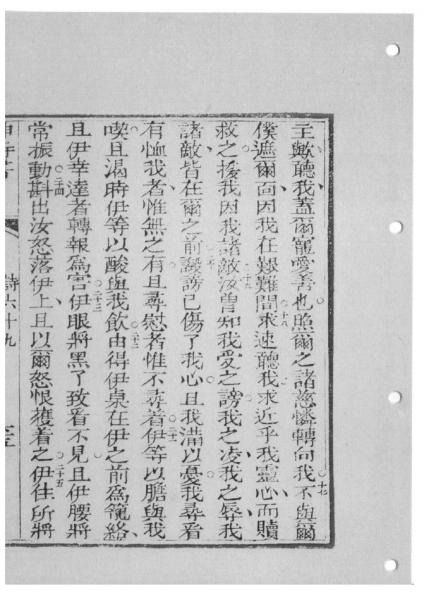 主歟聽我蓋爾寵愛善也照爾之諸慈憐轉向我○十七不與爾
僕遮爾面因我在艱難間求速聽我○十八求近乎我靈心而贖
救之援我因我諸敵○十九汝曾知我愛之謗我之凌我之辱我
諸敵皆在爾之前○二十譭謗已傷了我心且我滿以憂我尋看
有恤我者惟無之有且尋慰者惟不尋着○二十一伊等以膽與我
喫且渴時伊等以酸與我飲○二十二由得伊桌在伊之前為籠絡
且伊幸達者轉報為害○二十三伊眼將黑了致看不見且伊腰將
常振動○二十四斟出汝怒落伊上且以爾怒恨獲着之○二十五伊住所將
詩六十九